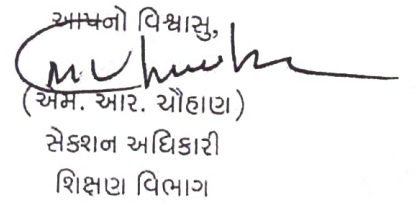 આપનો વિશ્વાસુ,
(એમ. આર. ચૌહાણ)
સેકશન અધિકારી
શિક્ષણ વિભાગ